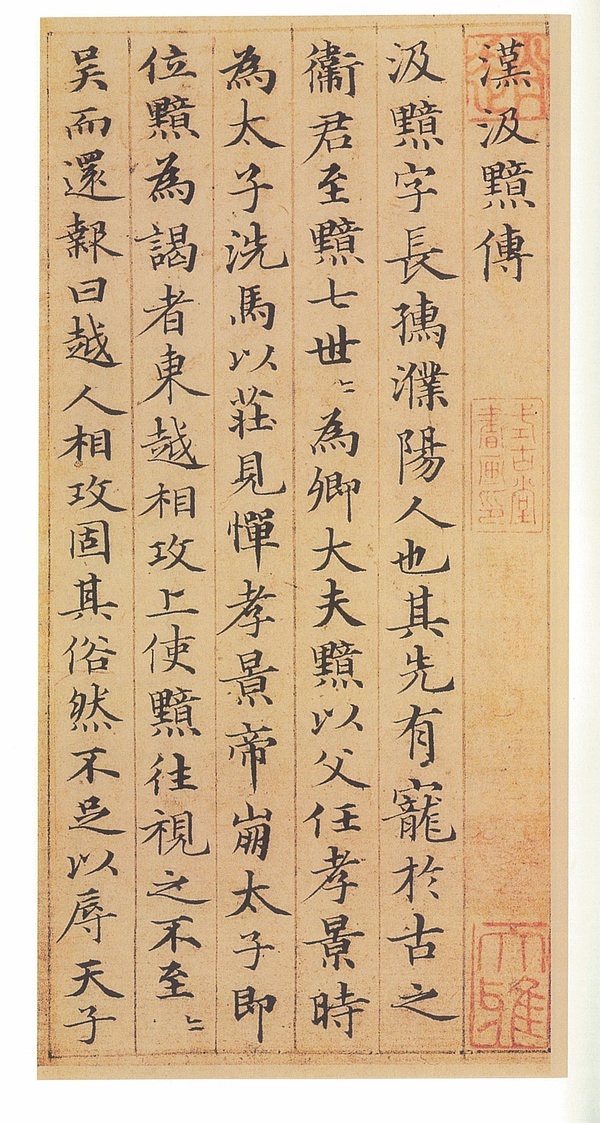 漢汲黯傳
式古堂
書畫印
大雅
汲黯字長孺濮陽人也其先有寵於古之
衞君至黯七世〻為卿大夫黯以父任孝景時
為太子洗馬以莊見憚孝景帝崩太子即
位黯為謁者東越相攻上使黯往視之不至〻
吳而還報曰越人相攻固其俗然不足以辱天子